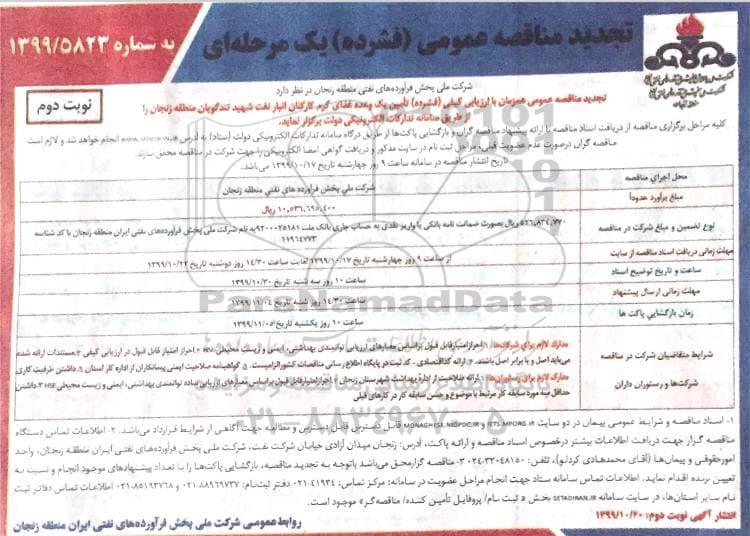 تجدید مناقصه عمومی (فشرده) یک مرحله‌ای
به شماره ۱۳۹۹/۵۸۲۳
نوبت دوم
شرکت ملی پخش فرآورده‌های نفتی منطقه زنجان در نظر دارد
تجدید مناقصه عمومی همزمان با ارزیابی کیفی (فشرده) تأمین یک وعده غذای گرم کارکنان انبار نفت شهید تندگویان منطقه زنجان را
از طریق سامانه تدارکات الکترونیکی دولت برگزار نماید.
کلیه مراحل برگزاری مناقصه از دریافت اسناد مناقصه تا ارائه پیشنهاد مناقصه گران و بازگشایی پاکت‌ها از طریق درگاه سامانه تدارکات الکترونیکی دولت (ستاد) به آدرس انجام خواهد شد و لازم است
مناقصه گران درصورت عدم عضویت قبلی، مراحل ثبت نام در سایت مذکور و دریافت گواهی امضا الکترونیکی را جهت شرکت در مناقصه محقق سازند.
تاریخ انتشار مناقصه در سامانه ساعت ۹ روز چهارشنبه تاریخ ۱۳۹۹/۱۰/۱۷ می‌باشد.
محل اجرای مناقصه
شرکت ملي پخش فرآورده های نفتي منطقه زنجان
مبلغ برآورد حدوداً
۱۰,۵۳۶,۶۹۵,۴۰۰ ریال
نوع تضمین و مبلغ شرکت در مناقصه
۵۲۶,۸۳۴,۷۷۰ ریال بصورت ضمانت نامه بانکی یا واریز نقدی به حساب جاری بانک ملت به نام شرکت ملی پخش فرآورده‌های نفتی ایران منطقه زنجان با کد شناسه
مهلت زمانی دریافت اسناد مناقصه از سایت
از ساعت ۹ روز چهارشنبه تاریخ ۱۳۹۹/۱۰/۱۷ لغایت ساعت ۱۴/۳۰ روز دوشنبه تاریخ ۱۳۹۹/۱۰/۲۲
ساعت و تاریخ توضیح اسناد
ساعت ۱۰ روز سه شنبه تاریخ ۱۳۹۹/۱۰/۳۰
مهلت زمانی ارسال پیشنهاد
ساعت ۱۴/۳۰ روز شنبه تاریخ ۱۳۹۹/۱۱/۰۴
زمان بازگشایی پاکت ها
ساعت ۱۰ روز یکشنبه تاریخ ۱۳۹۹/۱۱/۰۵
شرایط متقاضیان شرکت در مناقصه
شرکت‌ها و رستوران داران
مدارک لازم برای شرکت‌ها: ۱. احراز امتیاز قابل قبول براساس معیارهای ارزیابی توانمندی بهداشتی، ایمنی و زیست محیطی HSE ۲. احراز امتیاز قابل قبول در ارزیابی کیفی ۳. مستندات ارائه شده
می‌باید اصل و یا برابر اصل باشند. ۴. ارائه کد اقتصادی - کد ثبت در پایگاه اطلاع رسانی مناقصات کشور الزامیست. ۵. گواهینامه صلاحیت ایمنی پیمانکاران از اداره کار استان ۶. داشتن ظرفیت کاری
مدارک لازم برای رستوران‌ها: ۱. ارائه صلاحیت از اداره بهداشت شهرستان زنجان ۲. احراز امتیاز قابل قبول براساس معیارهای ارزیابی ساده توانمندی بهداشتی، ایمنی و زیست محیطی HSE ۳. داشتن
حداقل سه مورد سابقه کار مرتبط با موضوع و حسن سابقه کار در کارهای قبلی
ParsNamadData
۰۲۱-۸۸۳۴۹۶۷۰-۵
۱- اسناد مناقصه و شرایط عمومی پیمان در دو سایت IETS.MPORG.IR و MONAGHESE.NIOPDC.IR قابل دسترس قابل دسترس بودن و مطالعه جهت آگاهی از شرایط قرارداد می‌باشد. ۲- اطلاعات تماس دستگاه
مناقصه گزار جهت دریافت اطلاعات بیشتر درخصوص اسناد مناقصه و ارائه پاکت، آدرس: زنجان میدان آزادی خیابان شرکت نفت، شرکت ملی پخش فرآورده‌های نفتی ایران منطقه زنجان، واحد
امورحقوقی و پیمان‌ها (آقای محمدهادی کردلو)، تلفن: ۰۲۴-۳۳۰۴۸۱۵۰ ۳- مناقصه گزار محق می‌باشد باتوجه به تجدید مناقصه، بازگشایی پاکت‌ها را با تعداد پیشنهادهای موجود انجام و نسبت به
تعیین برنده اقدام نماید. اطلاعات تماس سامانه ستاد جهت انجام مراحل عضویت در سامانه: مرکز تماس: ۰۲۱-۴۱۹۳۴ دفتر ثبت‌نام: ۰۲۱-۸۸۹۶۹۷۳۷ و ۰۲۱-۸۵۱۹۳۷۶۸ اطلاعات تماس دفاتر ثبت
نام سایر استان‌ها، در سایت سامانه SETADIRAN.IR بخش « ثبت نام/ پروفایل تأمین کننده/ مناقصه‌گر» موجود است.
انتشار آگهی نوبت دوم: ۱۳۹۹/۱۰/۲۰
روابط عمومی شرکت ملی پخش فرآورده‌های نفتی ایران منطقه زنجان